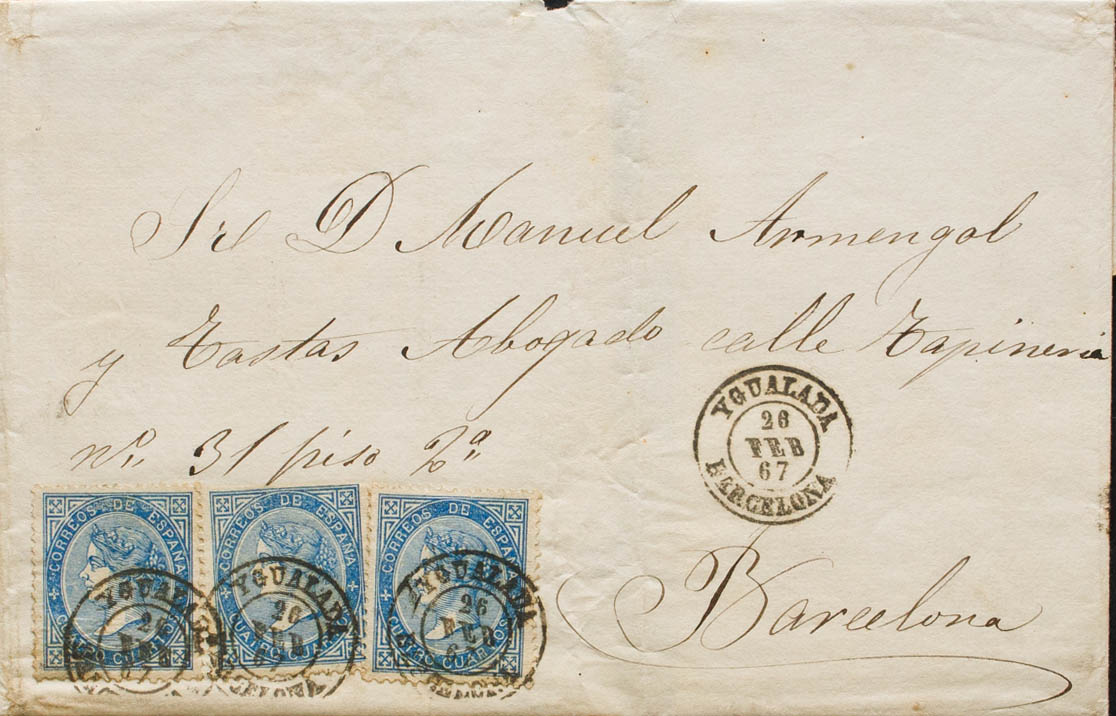 Sre D Manuel Armengol
y Tastas Abogado calle Tapineria
nº 31 piso 2º
Barcelona
YGUALADA
26
FEB
67
BARCELONA
CORREOS DE ESPAÑA
CUATRO CUARTOS
YGUALADA
26
FEB
67
CORREOS DE ESPAÑA
CUATRO CUARTOS
YGUALADA
26
FEB
67
BARCELONA
CORREOS DE ESPAÑA
CUATRO CUARTOS
YGUALADA
26
FEB
67
BARCELONA